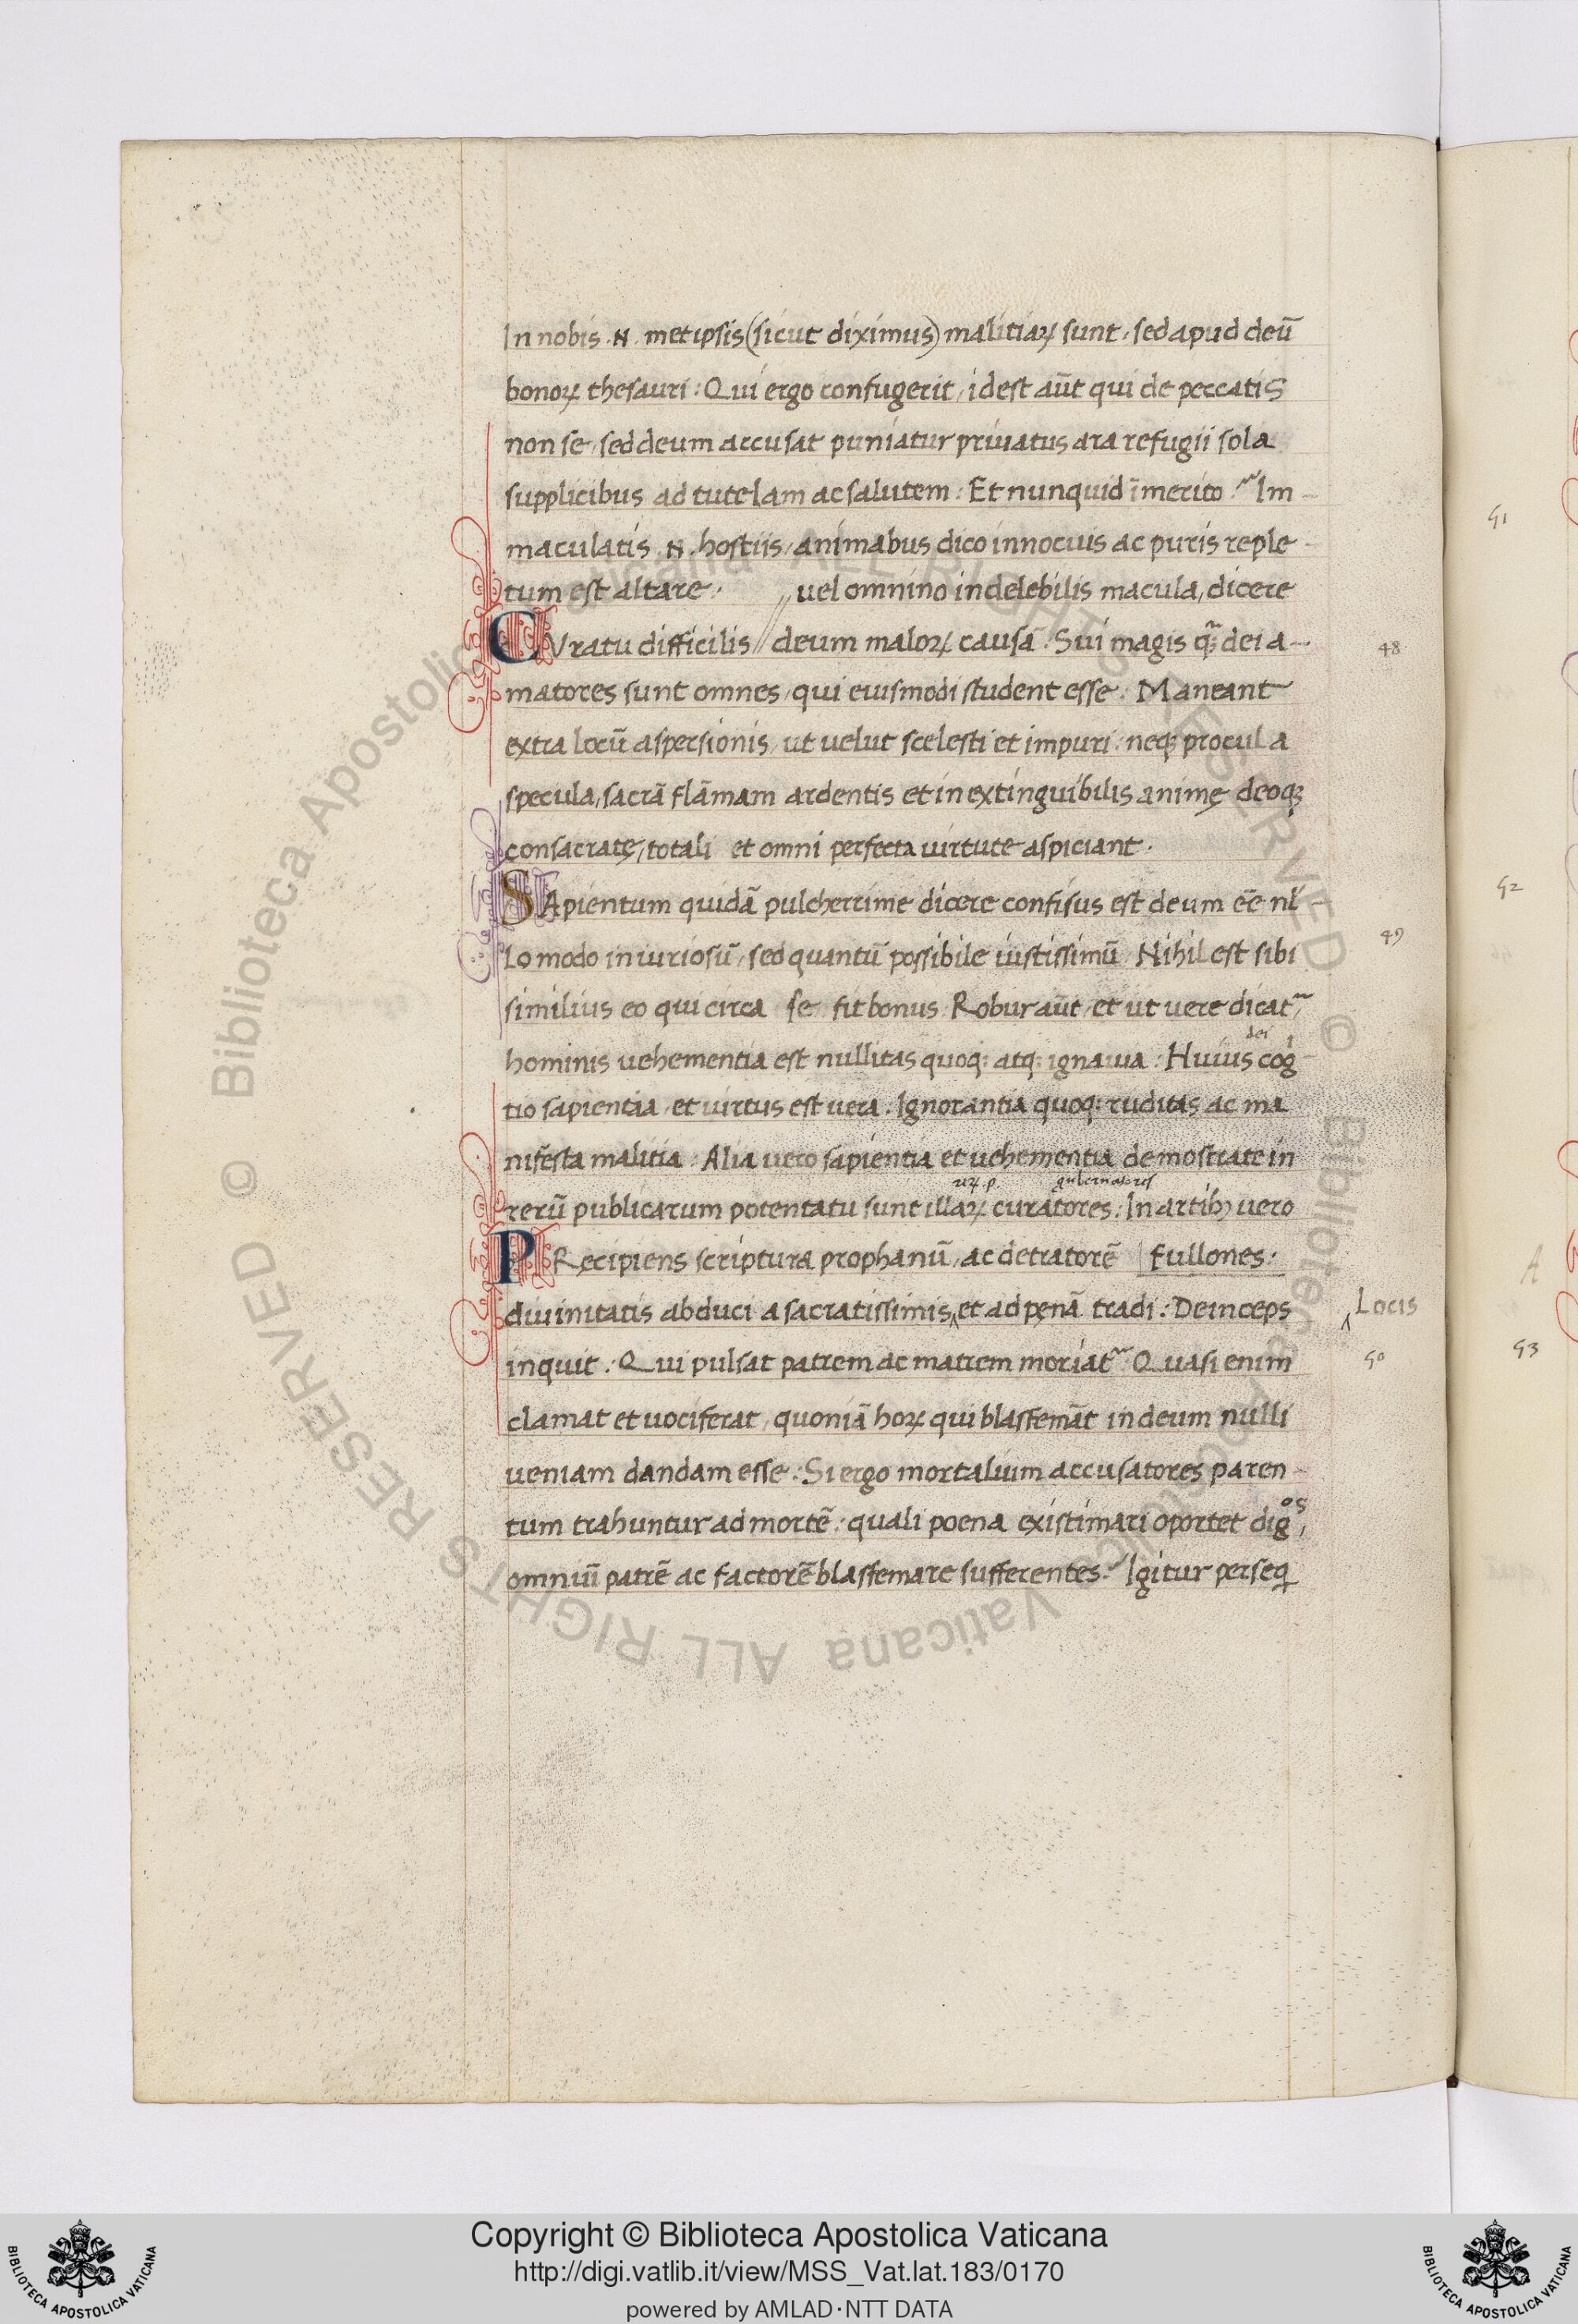 In nobis .N. metipsis (sicut diximus) malitiaꝝ sunt, sed apud deū
bonoꝝ thesauri: Qui ergo confugerit, idest aūt qui de peccatis
non se, sed deum accusat puniatur priuatus ara refugii sola
supplicibus ad tutelam ac salutem: Et nunquid īmerito: Im-
maculatis .N. hostiis, animabus dico innocuis ac puris reple-
tum est altare: // uel omnino indelebilis macula, dicere
CVratu difficilis // deum maloꝝ causā: Sui magis q̃ꝫ dei a-
matores sunt omnes, qui eiusmodi student esse: Maneant
extra locū aspersionis, ut velut scelesti et impuri: neqꝫ procul a
specula, sacrā flāmam ardentis et inextinguibilis animę deoqꝫ
consacratę, totali et omni perfecta uirtute aspiciant.
SApientum quidā pulcherrime dicere confisus est deum eē nl̄-
lo modo iniuriosū, sed quantū possibile iustissimū Nihil est sibi
similius eo qui circa se fit bonus Robur aūt, et ut uere dicat᷑
dei
hominis uehementia est nullitas quoqꝫ atqꝫ ignauia: Huius cogⁱ-
tio sapientia, et uirtus est uera: Ignorantia quoqꝫ ruditas ac ma
nifesta malitia: Alia uero sapientia et uehementia demostrate in
reꝝ .p. gubernatores
rerū publicarum potentatu sunt illaꝝ curatores: In artibꝫ uero
PRecipiens scriptura prophanū, ac detratorē | fullones.
diuinitatis abduci a sacratissimis‸ et ad pęnā tradi: Deinceps
‸ Locis
inquit: Qui pulsat patrem ac matrem moriat᷑ Quasi enim
clamat et uociferat, quoniā hoꝝ qui blasfemāt in deum nulli
ueniam dandam esse: Si ergo mortalium accusatores paren-
tum trahuntur ad mortē: quali poena existimari oportet digᵒˢ,
omniū patrē ac factorē blasfemare sufferentes: Igitur perseq
48
49
50
51
52
53
A
Copyright © Biblioteca Apostolica Vaticana
http://digi.vatlib.it/view/MSS_Vat.lat.183/0170
powered by AMLAD·NTT DATA
BIBLIOTECA APOSTOLICA VATICANA
BIBLIOTECA APOSTOLICA VATICANA
© Biblioteca Apostolica Vaticana ALL RIGHTS RESERVED
© Biblioteca Apostolica Vaticana ALL RIGHTS RESERVED